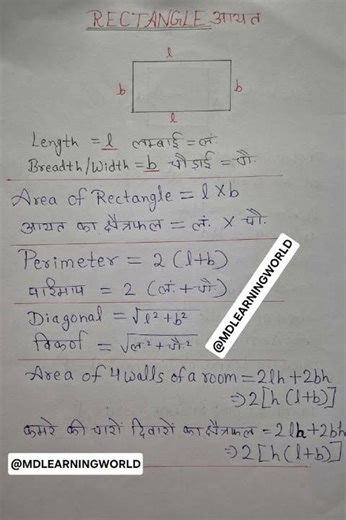 RECTANGLE आयत
l
b b
l
Length = l लम्बाई = लं.
Breadth/Width = b चौड़ाई = चौ.
Area of Rectangle = l x b
आयत का क्षेत्रफल = लं. x चौ.
Perimeter = 2 (l+b)
परिमाप = 2 (लं.+चौ.)
Diagonal = √l²+b²
विकर्ण = √लं²+चौ²
@MDLEARNINGWORLD
Area of 4 walls of a room = 2lh+2bh
⇒ 2[h(l+b)]
कमरे की चारों दिवारों का क्षेत्रफल = 2lh+2bh
⇒ 2[h(l+b)]
@MDLEARNINGWORLD